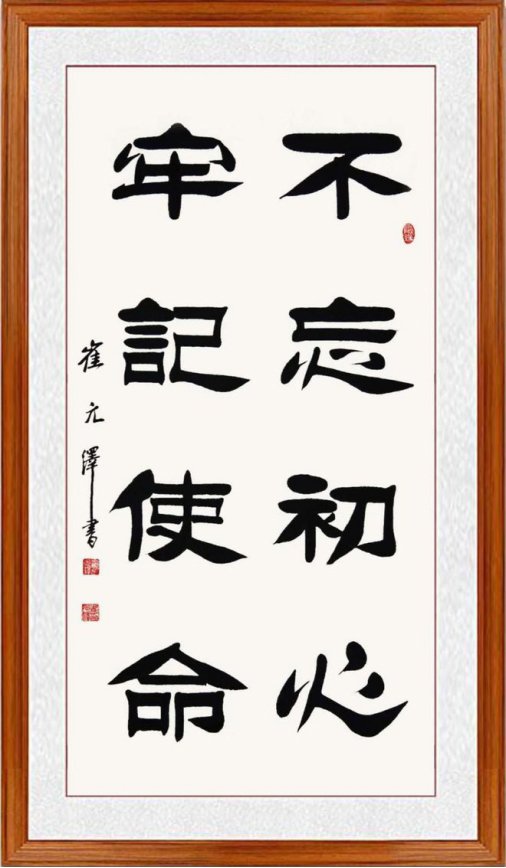 不忘初心
牢記使命
崔元澤書